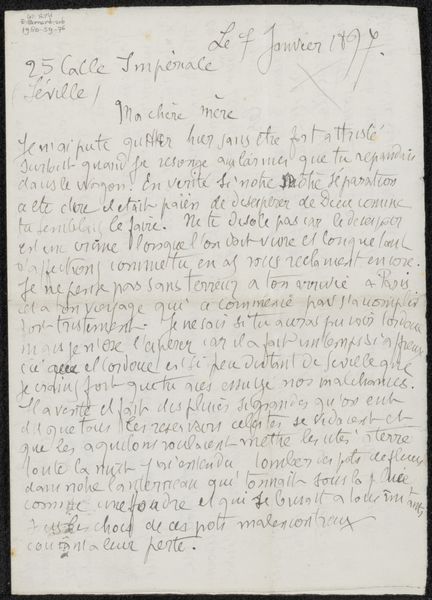 Le 7 Janvier 1897.
25 Calle Impériale
(Séville)
Ma chère mère
Je n'ai pu te quitter hier sans être fort attristé
surtout quand je resonge aux larmes que tu répandais
dans le wagon. En verité si notre séparation
a été dure il etait païen de desesperer de Dieu comme
tu semblais le faire. Ne te désole pas car le desespoir
est un crime lorsque l'on doit vivre et lorsque tant
d'affections comme tu en as vous reclament encore.
Je ne pense pas sans terreur a ton arrivée a Paris
et a ton voyage qui a commencé pas s'accomplir
tristement. Je ne sais si tu auras pu voir Cordoue
mais je n'ose l'esperer car il a fait un temps si affreux
ici que et Cordoue est si peu distant de Seville que
je crains fort que tu aies essuyé nos malchances.
Il a venté il fait des pluies si grandes qu'on eut
dit que tous les reservoirs celestes se vidaient et
que les aquilons voulaient mettre les cités a terre
toute la nuit j'ai entendu tomber des pots de fleurs
dans notre qui tonnait sous la pluie
comme une foudre et qui se
les chocs de ces pots malencontreux
courant a leur perte.